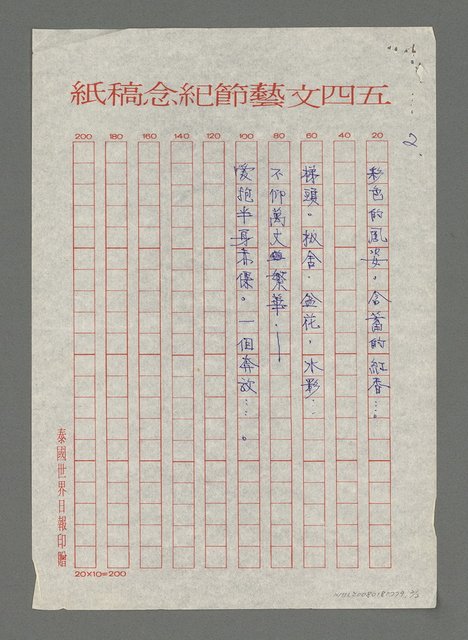 五四文藝節紀念稿紙
2.
20 40 60 80 100 120 140 160 180 200
彩色的風姿。含蓄的紅唇…。
梯頭。板舍．盆花，水影…
不仰萬丈繁華．——
愛抱半身赤倮。一個奔放…。
泰國世界日報印贈
20×10=200